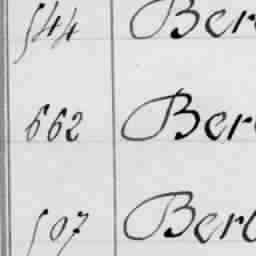 544 Ber
662 Ber
507 Ber